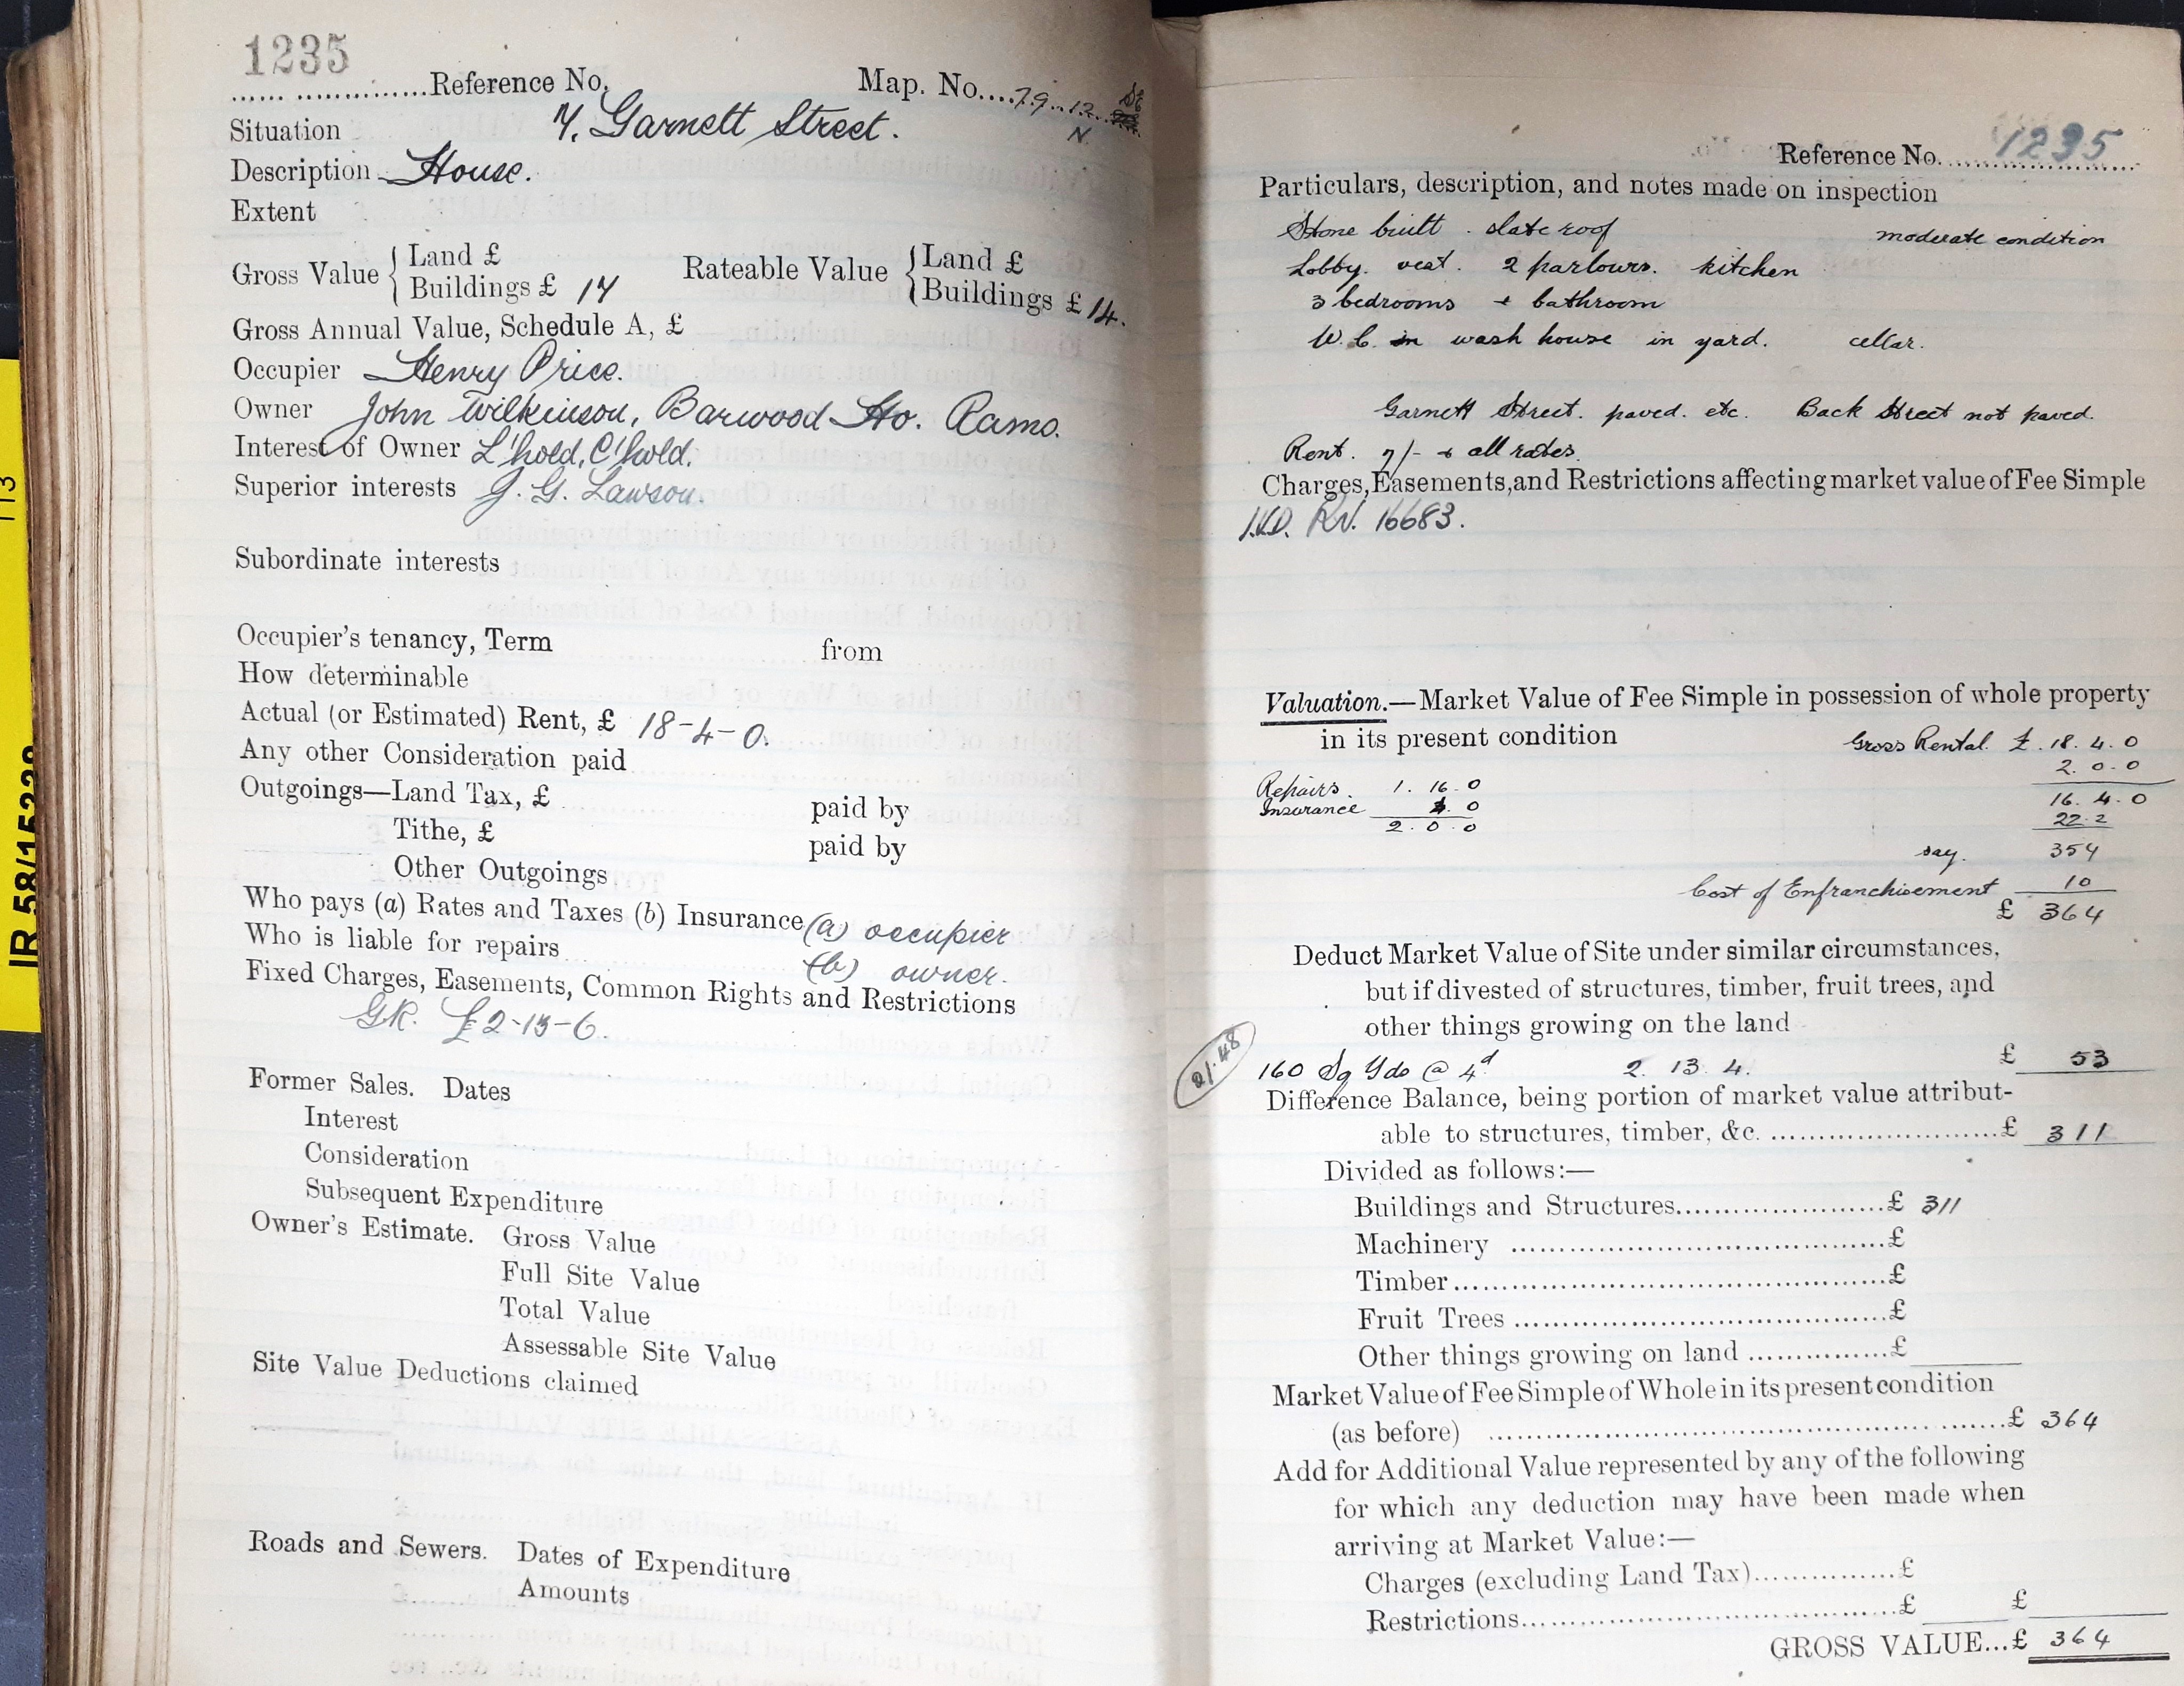 1235
Reference No. Map. No. 79. 12. SE
N
Situation 7, Garnett Street.
Description House.
Extent
Gross Value { Land £ Rateable Value { Land £
Buildings £ 17 Buildings £ 14.
Gross Annual Value, Schedule A, £
Occupier Henry Price.
Owner John Wilkinson, Barwood Ho. Rams.
Interest of Owner L'hold, C'hold.
Superior interests J. G. Lawson.
Subordinate interests
Occupier's tenancy, Term from
How determinable
Actual (or Estimated) Rent, £ 18-4-0.
Any other Consideration paid
Outgoings—Land Tax, £ paid by
Tithe, £ paid by
Other Outgoings
Who pays (a) Rates and Taxes (b) Insurance (a) occupier
Who is liable for repairs (b) owner.
Fixed Charges, Easements, Common Rights and Restrictions
GR. £2-13-6.
Former Sales. Dates
Interest
Consideration
Subsequent Expenditure
Owner's Estimate. Gross Value
Full Site Value
Total Value
Assessable Site Value
Site Value Deductions claimed
Roads and Sewers. Dates of Expenditure
Amounts
IR 58/15228
113
Reference No. 1235
Particulars, description, and notes made on inspection
Stone built. slate roof moderate condition
Lobby. vest. 2 parlours. kitchen
3 bedrooms + bathroom
W.C. in wash house in yard. cellar.
Garnett Street. paved. etc. Back Street not paved.
Rent. 7/- + all rates.
Charges, Easements, and Restrictions affecting market value of Fee Simple
RV. 16683.
Valuation.—Market Value of Fee Simple in possession of whole property
in its present condition Gross Rental. £. 18. 4. 0
2. 0. 0
Repairs. 1. 16. 0 16. 4. 0
Insurance 4. 0 22.2
2. 0. 0
say. 354
Cost of Enfranchisement 10
£ 364
Deduct Market Value of Site under similar circumstances,
but if divested of structures, timber, fruit trees, and
other things growing on the land
21.48
160 Sq Yds @ 4d 2. 13. 4. £ 53
Difference Balance, being portion of market value attribut-
able to structures, timber, &c. £ 311
Divided as follows:—
Buildings and Structures £ 311
Machinery £
Timber £
Fruit Trees £
Other things growing on land £
Market Value of Fee Simple of Whole in its present condition
(as before) £ 364
Add for Additional Value represented by any of the following
for which any deduction may have been made when
arriving at Market Value:—
Charges (excluding Land Tax) £
Restrictions £ £
GROSS VALUE...£ 364